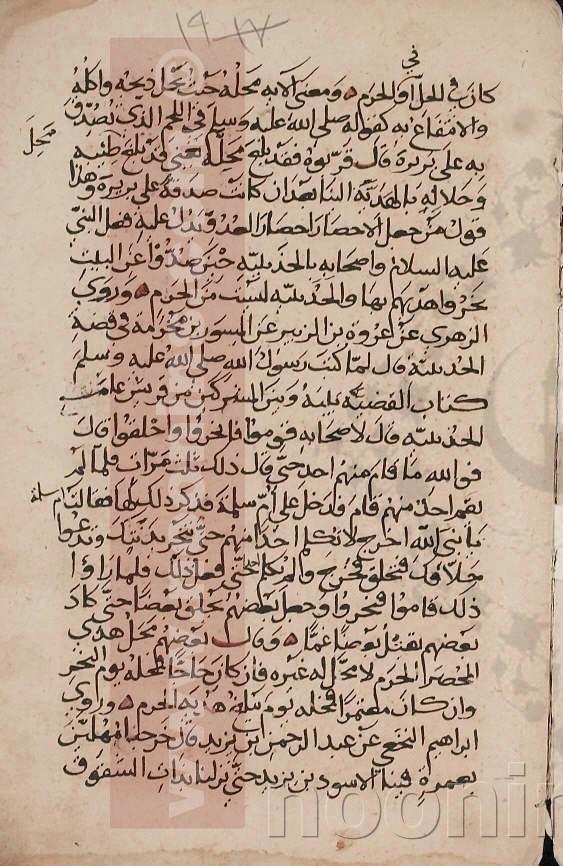 ١٧ ١٩
في
كان في الحل او الحرم ومعنى الآية محله حيث يحل ذبحه واكله
والانتفاع به كقوله صلى الله عليه وسلم في اللحم الذي تصدق
به على بريرة قال قربوه فقد بلغ محله يعني قد بلغ طيبه
محل
وحلاله بالهدية الينا بعد ان كانت صدقة على بريرة وهذا
قول من جعل الاحصار احصار العدو ويدل عليه فعل النبي
عليه السلام واصحابه بالحديبية حين صدوا عن البيت
نحروا هديهم بها والحديبية ليست من الحرم وروى
الزهري عن عروة بن الزبير عن المسور بن مخرمة في قصة
الحديبية قال لما كتب رسول الله صلى الله عليه وسلم
كتاب القضية بينه وبين المشركين من قريش عام
الحديبية قال لاصحابه قوموا فانحروا واحلقوا قال
فوالله ما قام منهم احد حتى قال ذلك ثلث مرات فلما لم
يقم احد منهم قام فدخل على ام سلمة فذكر ذلك لها فقالت ام سلمة
يا نبي الله اخرج لا تكلم احدا منهم حتى تنحر بدنك وتدعوا
حلاقك فيحلق فخرج ولم يكلم احدا حتى فعل ذلك فلما راوا
ذلك قاموا فنحروا وجعل بعضهم يحلق بعضا حتى كاد
بعضهم يقتل بعضا غما وقال بعضهم محل هدي
المحصر الحرم لا محل له غيره فان كان حاجا فمحله يوم النحر
وان كان معتمرا فمحله يوم يبلغ هديه الحرم وروي
ابراهيم النخعي عن عبد الرحمن بن يزيد قال خرجنا مهلين
بعمرة فينا الاسود بن يزيد حتى نزلنا ذات الشقوق
noonin